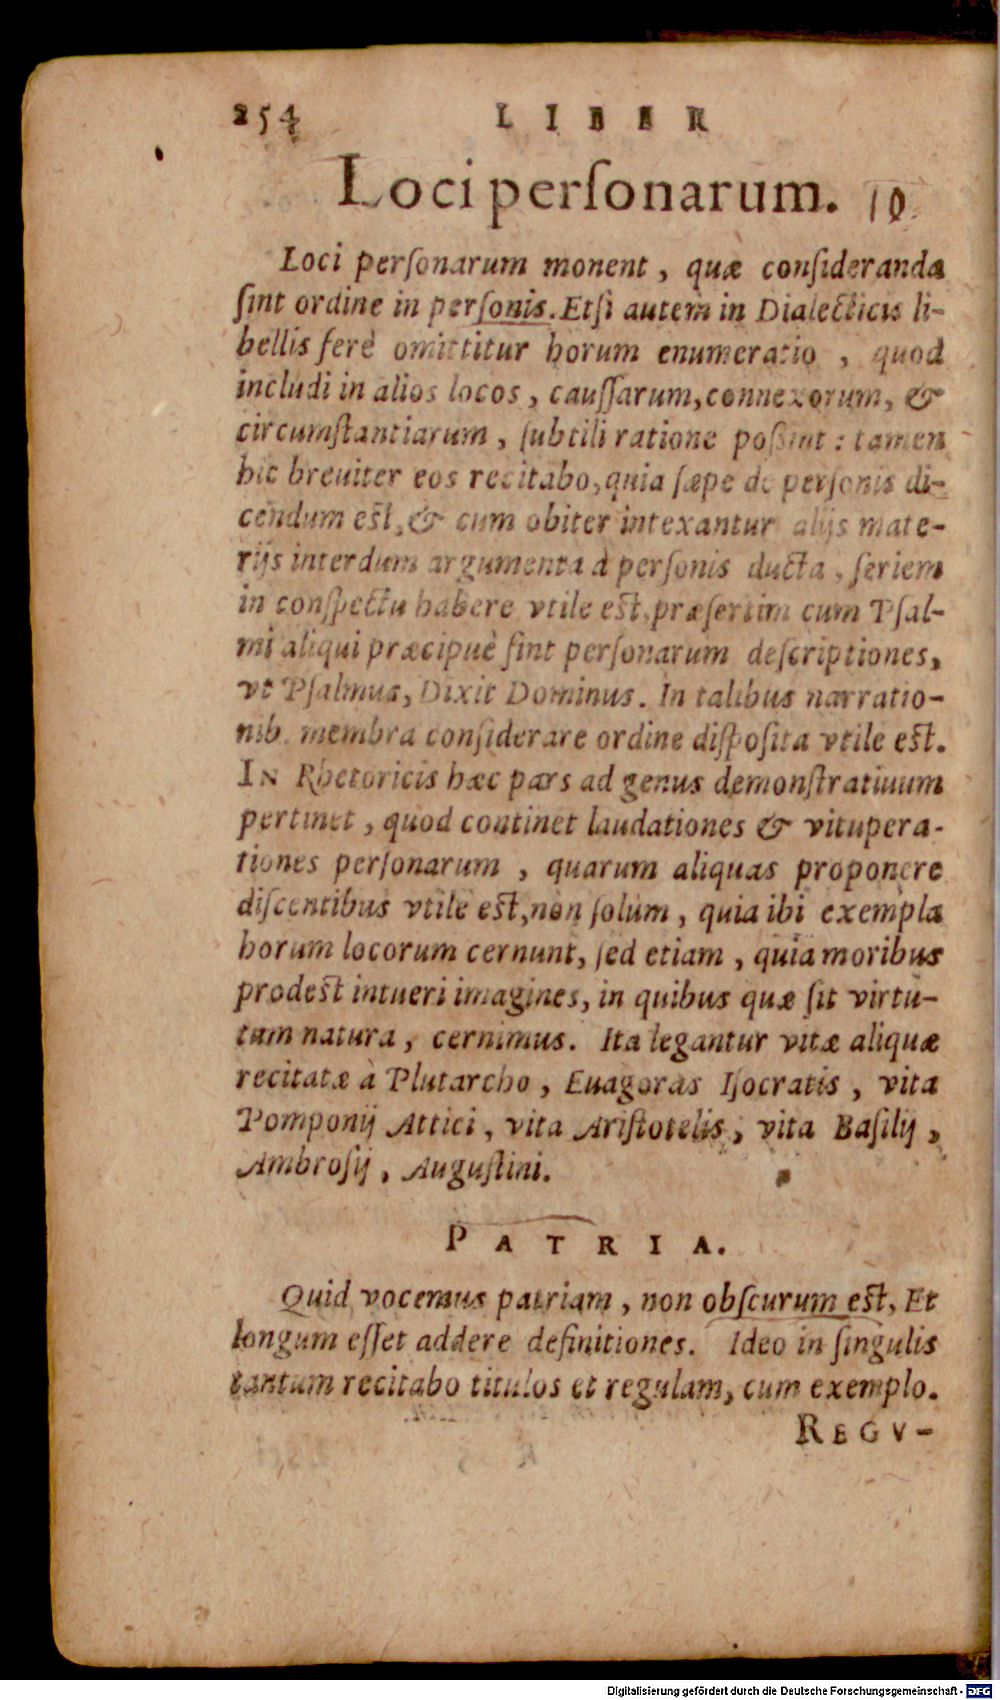 254 LIBER
Loci perſonarum. 10
Loci perſonarum monent, quæ conſideranda
ſint ordine in perſonis. Etſi autem in Dialecticis li-
bellis ferè omittitur horum enumeratio, quod
includi in alios locos, cauſſarum, connexorum, &
circumſtantiarum, ſubtili ratione poßint: tamen
hic breuiter eos recitabo, quia ſæpe de perſonis di-
cendum est, & cum obiter intexantur alijs mate-
rijs interdum argumenta à perſonis ducta, ſeriem
in conſpectu habere vtile est, præſertim cum Pſal-
mi aliqui præcipuè ſint perſonarum deſcriptiones,
vt Pſalmus, Dixit Dominus. In talibus narratio-
nib. membra conſiderare ordine diſpoſita vtile est.
IN Rhetoricis hæc pars ad genus demonſtratiuum
pertinet, quod continet laudationes & vitupera-
tiones perſonarum, quarum aliquas proponere
diſcentibus vtile est, non ſolùm, quia ibi exempla
horum locorum cernunt, ſed etiam, quia moribus
prodest intueri imagines, in quibus quæ ſit virtu-
tum natura, cernimus. Ita legantur vitæ aliquæ
recitatæ à Plutarcho, Euagoras Iſocratis, vita
Pomponij Attici, vita Ariſtotelis, vita Baſilij,
Ambroſij, Auguſtini.
PATRIA.
Quid vocemus patriam, non obſcurum est, Et
longum eſſet addere definitiones. Ideo in ſingulis
tantum recitabo titulos et regulam, cum exemplo.
REGV-
Digitalisierung gefördert durch die Deutsche Forschungsgemeinschaft - DFG